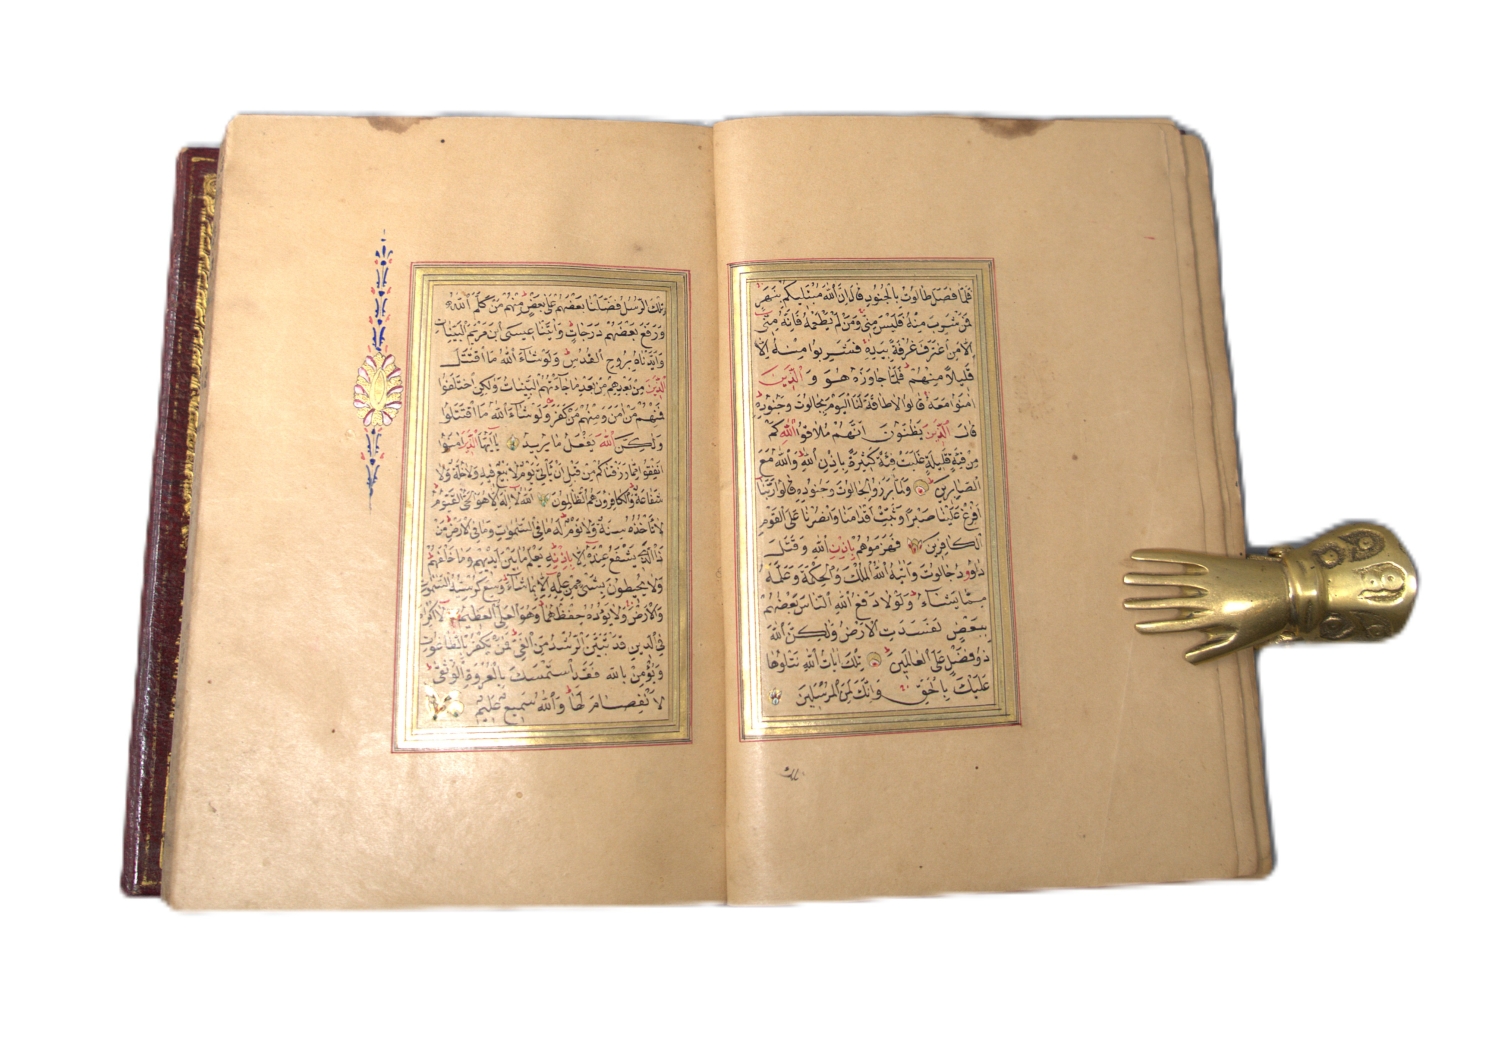 فلما فصل طالوت بالجنود قال ان الله مبتليكم بنهر
فمن شرب منه فليس مني ومن لم يطعمه فانه مني
الا من اغترف غرفة بيده فشربوا منه الا
قليلا منهم فلما جاوزه هو و الذين
امنوا معه قالوا لا طاقة لنا اليوم بجالوت وجنوده
قال الذين يظنون انهم ملاقوا الله كم
من فئة قليلة غلبت فئة كثيرة باذن الله والله مع
الصابرين ولما برزوا لجالوت وجنوده قالوا ربنا
افرغ علينا صبرا وثبت اقدامنا وانصرنا على القوم
الكافرين فهزموهم باذن الله وقتل
داوود جالوت واتيه الله الملك والحكمة وعلمه
مما يشاء ولولا دفع الله الناس بعضهم
ببعض لفسدت الارض ولكن الله
ذو فضل على العالمين تلك ايات الله نتلوها
عليك بالحق وانك لمن المرسلين
تلك
تلك الرسل فضلنا بعضهم على بعض منهم من كلم الله
ورفع بعضهم درجات واتينا عيسى ابن مريم البينات
وايدناه بروح القدس ولو شاء الله ما اقتتل
الذين من بعدهم من بعد ما جاءتهم البينات ولكن اختلفوا
فمنهم من امن ومنهم من كفر ولو شاء الله ما اقتتلوا
ولكن الله يفعل ما يريد يا ايها الذين امنوا
انفقوا مما رزقناكم من قبل ان ياتي يوم لا بيع فيه ولا خلة ولا
شفاعة والكافرون هم الظالمون الله لا اله الا هو الحي القيوم
لا تاخذه سنة ولا نوم له ما في السموات وما في الارض من
ذا الذي يشفع عنده الا باذنه يعلم ما بين ايديهم وما خلفهم
ولا يحيطون بشيء من علمه الا بما شاء وسع كرسيه السموات
والارض ولا يؤده حفظهما وهو العلي العظيم لا اكراه
في الدين قد تبين الرشد من الغي فمن يكفر بالطاغوت
ويؤمن بالله فقد استمسك بالعروة الوثقى
لا انفصام لها والله سميع عليم